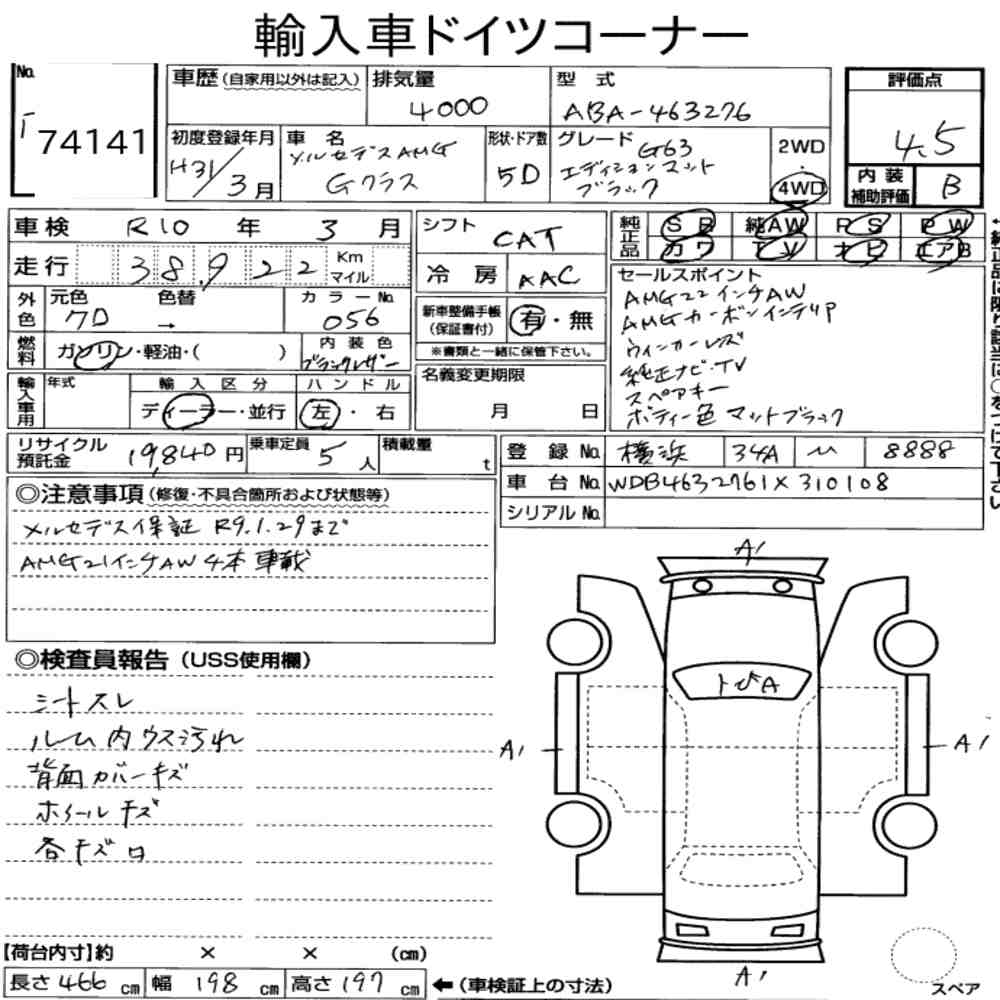 輸入車ドイツコーナー
No.
T 74141
車歴 (自家用以外は記入)
排気量
4000
型 式
ABA-463276
評価点
4.5
初度登録年月
H31/3月
車 名
メルセデスAMG
Gクラス
形状・ドア数
5D
グレード G63
エディションマット
ブラック
2WD
・
4WD
内装
補助評価
B
車検 R10 年 3 月
シフト
CAT
純正品
SB 純AW PS PW
カワ TV ナビ エアB
走行 38,922 Km
マイル
冷 房 AAC
セールスポイント
AMG22インチAW
AMGカーボンインテリア
ウィンカーレンズ
純正ナビ・TV
スペアキー
ボディー色マットブラック
外色
元色 色替 カラーNo.
7D → 056
新車整備手帳
(保証書付)
有・無
※書類と一緒に保管下さい。
燃料
ガソリン・軽油・( )
内 装 色
ブラックレザー
名義変更期限
月 日
輸入車用
年式
輸 入 区 分
ディーラー・並行
ハ ン ド ル
左・右
リサイクル
預託金
19,840円
乗車定員
5人
積載量
t
登 録 No. 横浜 34A 8888
車 台 No. WDB4632761X310108
シリアルNo.
◎注意事項(修復・不具合箇所および状態等)
メルセデス保証 R9.1.29まで
AMG21インチAW4本車載
◎検査員報告(USS使用欄)
シートスレ
ルーム内ウス汚れ
背面カバーキズ
ホイールキズ
各キズ有
A1
トビA
A1
A1
A1
スペア
【荷台内寸】約 × × (cm)
長さ466cm 幅 198 cm 高さ197cm ←(車検証上の寸法)